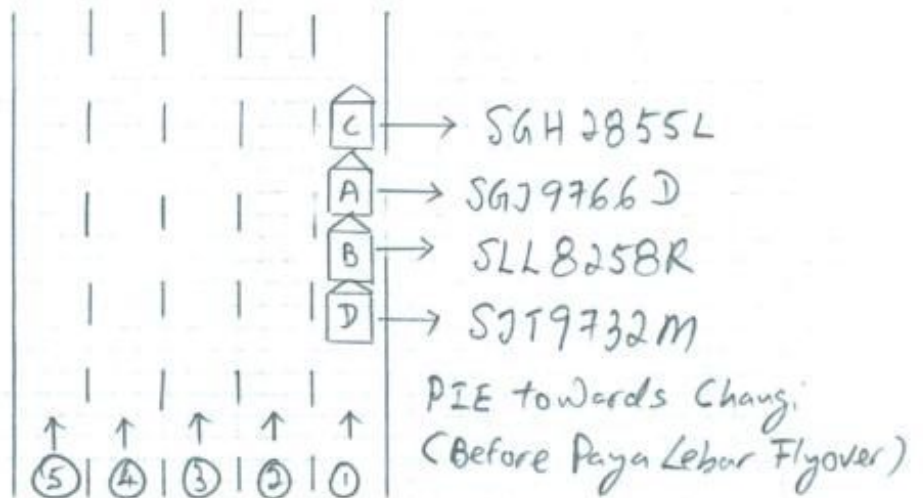 C → SGH2855L
A → SGJ9766D
B → SLL8258R
D → SJT9732M
PIE towards Changi
(Before Paya Lebar Flyover)
↑ ↑ ↑ ↑ ↑
5 4 3 2 1